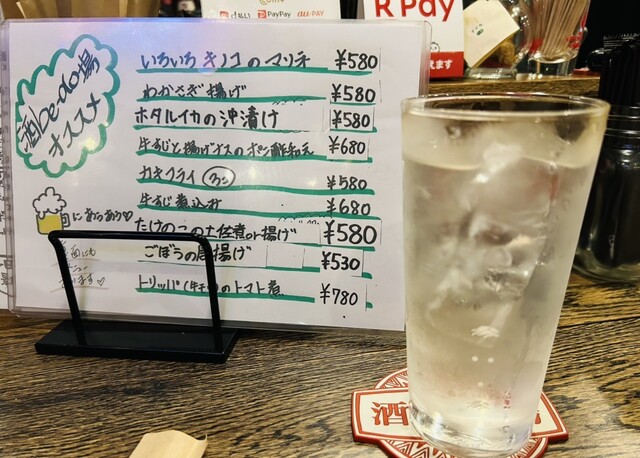 PayPay
au PAY
R Pay
えます
酒pe-do場
オススメ
いろいろキノコのマリネ ¥580
わかさぎ揚げ ¥580
ホタルイカの沖漬け ¥580
牛すじと揚げナスのポン酢和え ¥680
カキフライ ¥580
牛すじ煮込み ¥680
たけのこの土佐煮の揚げ ¥580
ごぼうの唐揚げ ¥530
トリッパ(牛)のトマト煮 ¥780
にあうあう♡
酒